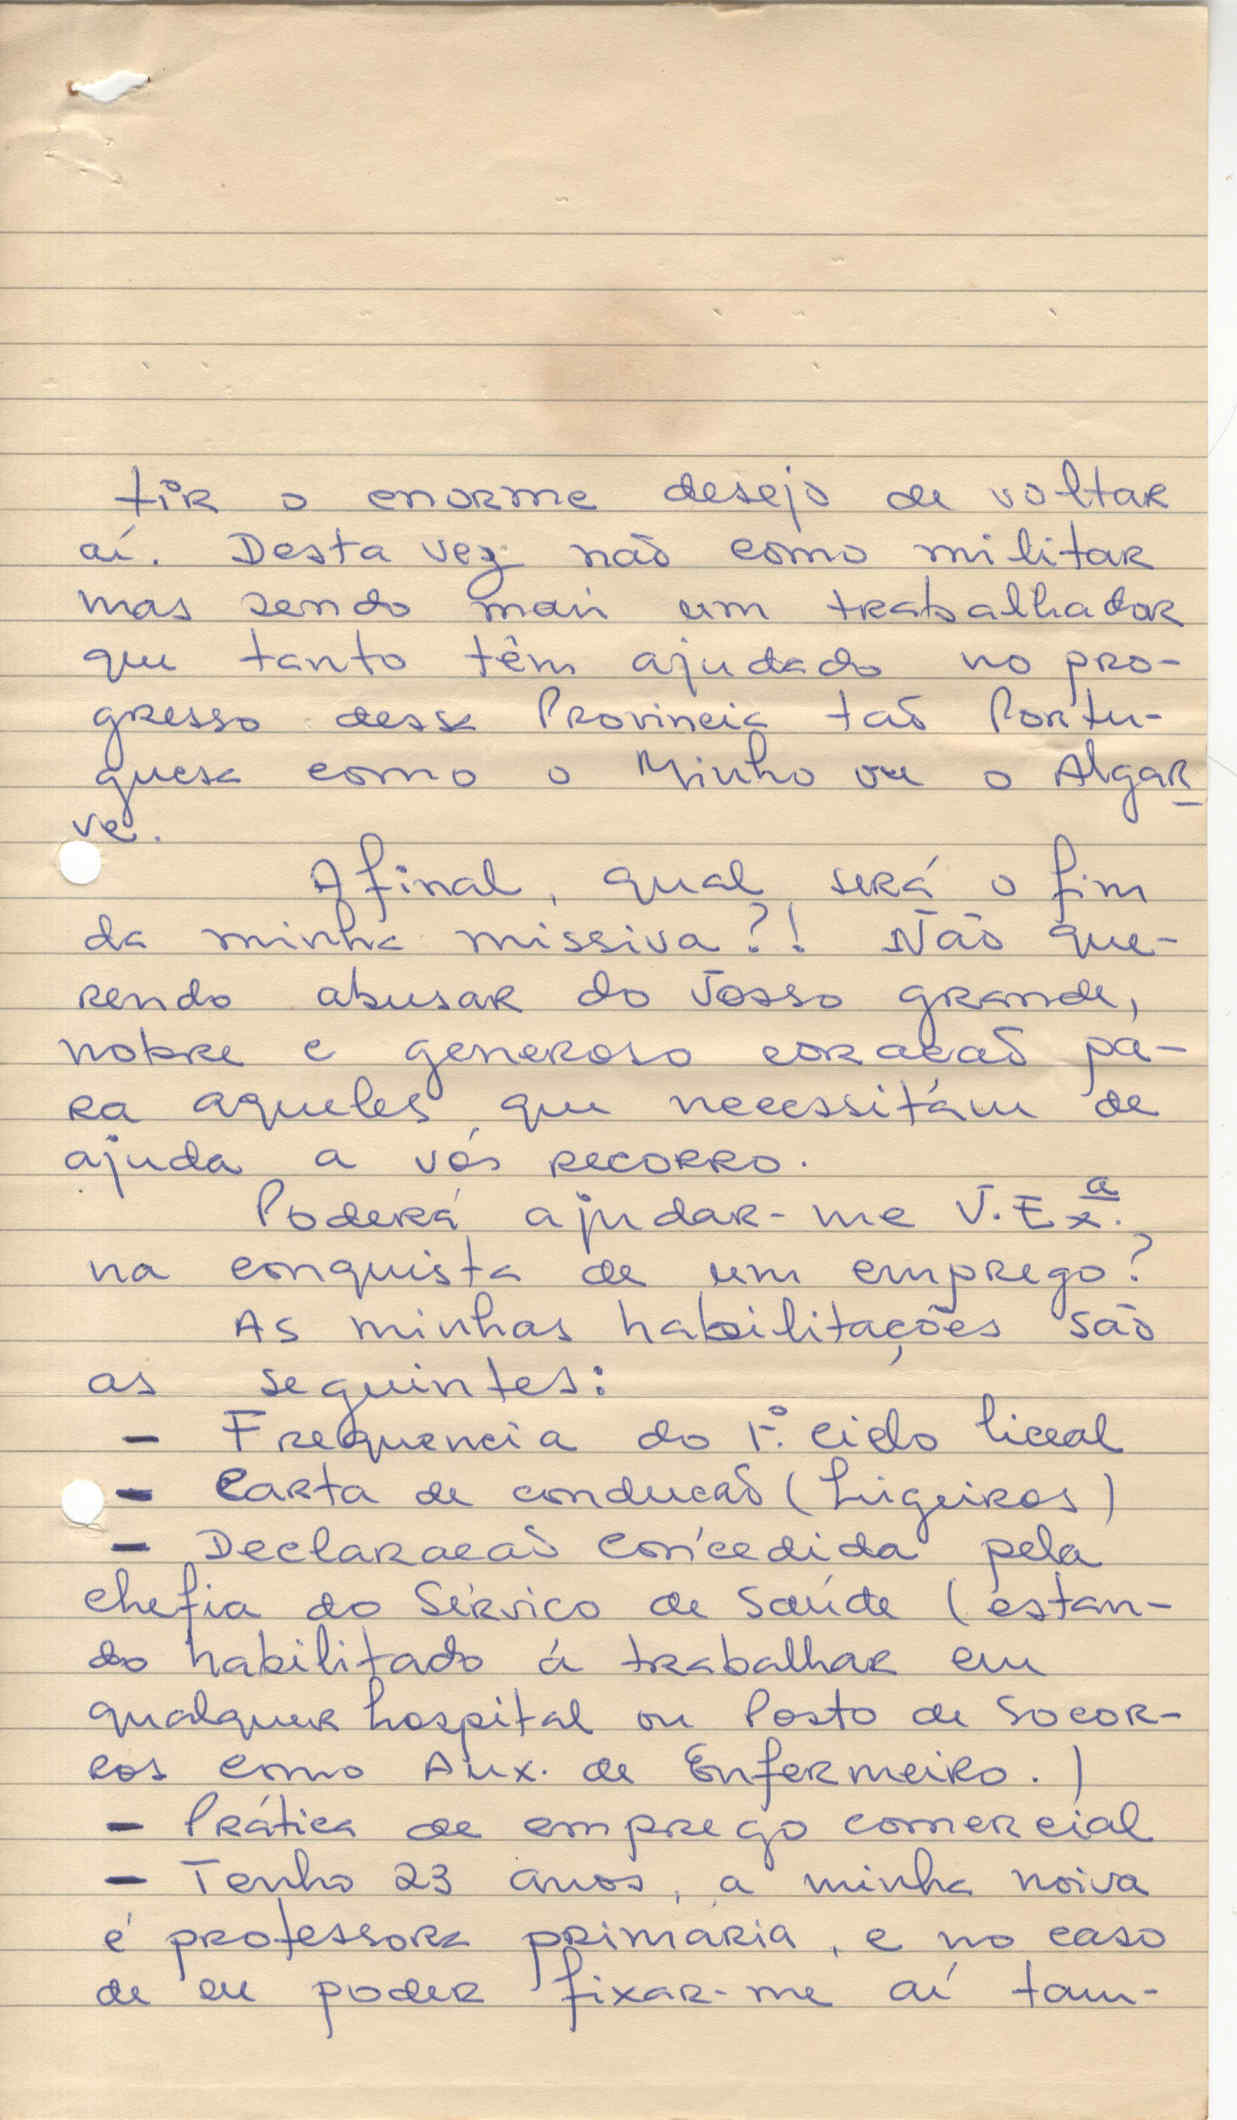 tir o enorme desejo de voltar
aí. Desta vez não como militar
mas sendo mais um trabalhador
que tanto têm ajudado no pro-
gresso dessa Provincia tão Portu-
guesa como o Minho ou o Algar
ve.
Afinal, qual será o fim
da minha missiva?! Não que-
rendo abusar do Vosso grande,
nobre e generoso coracão pa-
ra aqueles que necessitám de
ajuda a vós recorro.
Poderá ajudar-me V. Exª.
na conquista de um emprego?
As minhas habilitações são
as seguintes:
- Frequencia do 1º. ciclo liceal
- Carta de conducão (Ligeiros)
- Declaracão concedida pela
chefia do Serviço de Saúde (estan-
do habilitado á trabalhar em
qualquer hospital ou Posto de Socor-
ros como Aux. de Enfermeiro.)
- Prática de emprego comercial
- Tenho 23 anos, a minha noiva
é professora primária, e no caso
de eu poder fixar-me aí tam-